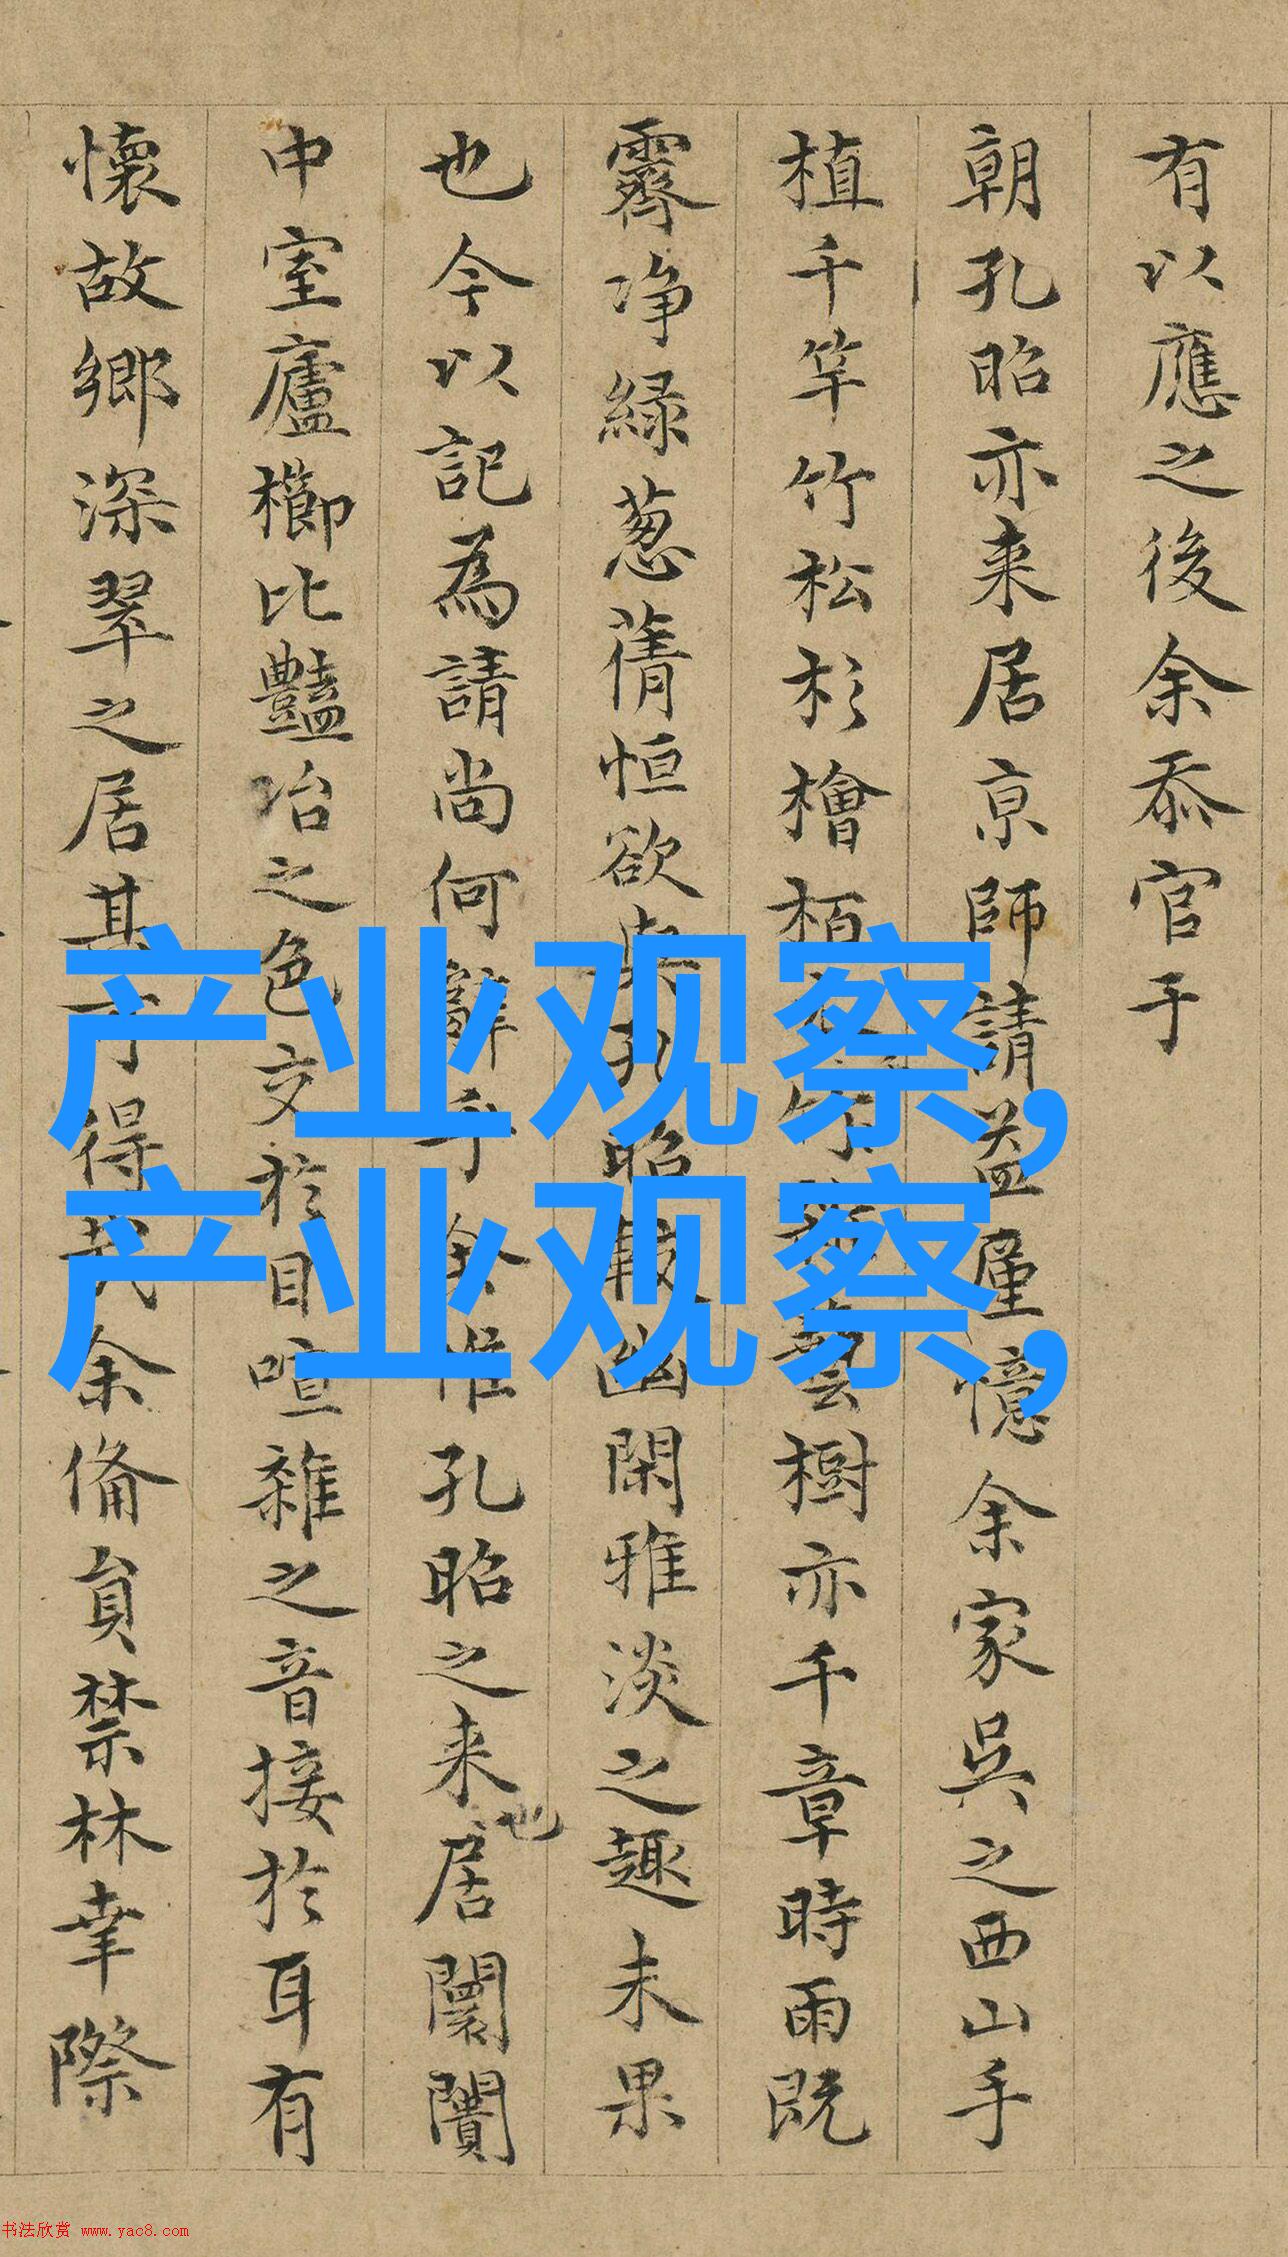 有以應之後余忝官于
朝孔昭亦来居京師請益屢憶余家吳之西山手
植千竿竹松杉檜栢 樹亦千章時雨既
霽净緑葱蒨恒欲與孔昭 幽閑雅淡之趣未果
也今以記為請尚何辭乎余惟孔昭之来居闤闠
也
中室廬櫛比豔冶之色交於目喧雜之音接於耳有
懷故鄉深翠之居其可得哉余備員禁林幸際
产业观察,
产业观察,
书法欣赏 www.yac8.com